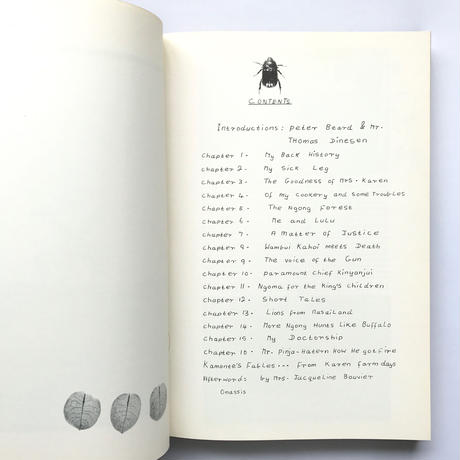 CONTENTS
Introductions: Peter Beard & Mr.
Thomas Dinesen
Chapter 1. My Back History
Chapter 2. My Sick Leg
Chapter 3. The Goodness of Mrs. Karen
Chapter 4. Of my cookery and some Troubles
Chapter 5. The Ngong Forest
Chapter 6. Me and Lulu
Chapter 7. A Matter of Justice
Chapter 8. Wambui Kahoi meets Death
Chapter 9. The voice of the Gun
Chapter 10. Paramount Chief Kinyanjui
Chapter 11. Ngoma for the King's children
Chapter 12. Short Tales
Chapter 13. Lions from Masailand
Chapter 14. More Ngong Hunts Like Buffalo
Chapter 15. My Doctorship
Chapter 16. Mr. Pinja-Hatern How He got fire
Kamante's Fables... from Karen farm days
Afterword: by Mrs. Jacqueline Bouvier
Onassis